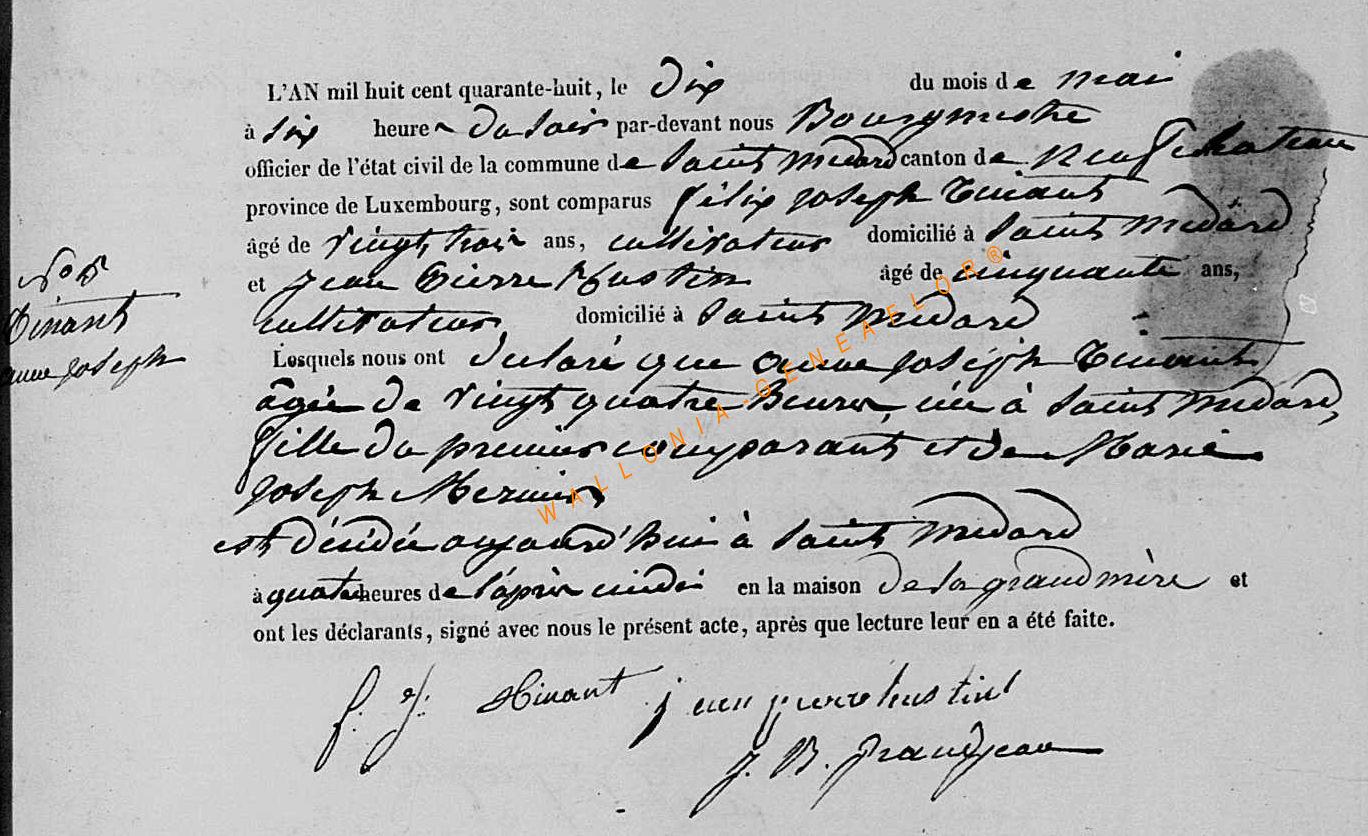 L'AN mil huit cent quarante-huit, le Dix du mois de mai
à six heures Du soir par-devant nous Bourgmestre
officier de l'état civil de la commune de Saint Médard canton de Neufchateau
province de Luxembourg, sont comparus félix joseph Tinant
âgé de vingt trois ans, cultivateur domicilié à Saint Médard
et jean Pierre Hustin âgé de cinquante ans,
cultivateur domicilié à Saint Médard
Lesquels nous ont Déclaré que anne joseph Tinant
âgée De vingt quatre heures, née à Saint Médard,
fille du premier comparant et de Marie
joseph
est décédée aujourd'hui à Saint Médard
à quatre heures de l'après midi en la maison De la grand mère et
ont les déclarants, signé avec nous le présent acte, après que lecture leur en a été faite.
f. j. Tinant jean pierre hustin
J. B. Grandjean
N° 5
Tinant
anne joseph
WALLONIA-GENEAELOR®